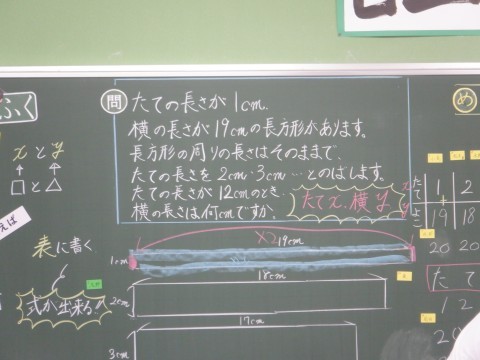 ふく
xとy
□と△
えば
表に書く
式が出来る!
問
たての長さが1cm、
横の長さが19cmの長方形があります。
長方形の周りの長さはそのままで、
たての長さを2cm・3cm…とのばします。
たての長さが12cmのとき、
横の長さは何cmですか。
たてx、横y
×2
19cm
1cm
18cm
2cm
17cm
3cm
め
x
たて 1 2
y
よこ 19 18
+
20 20
たて
12